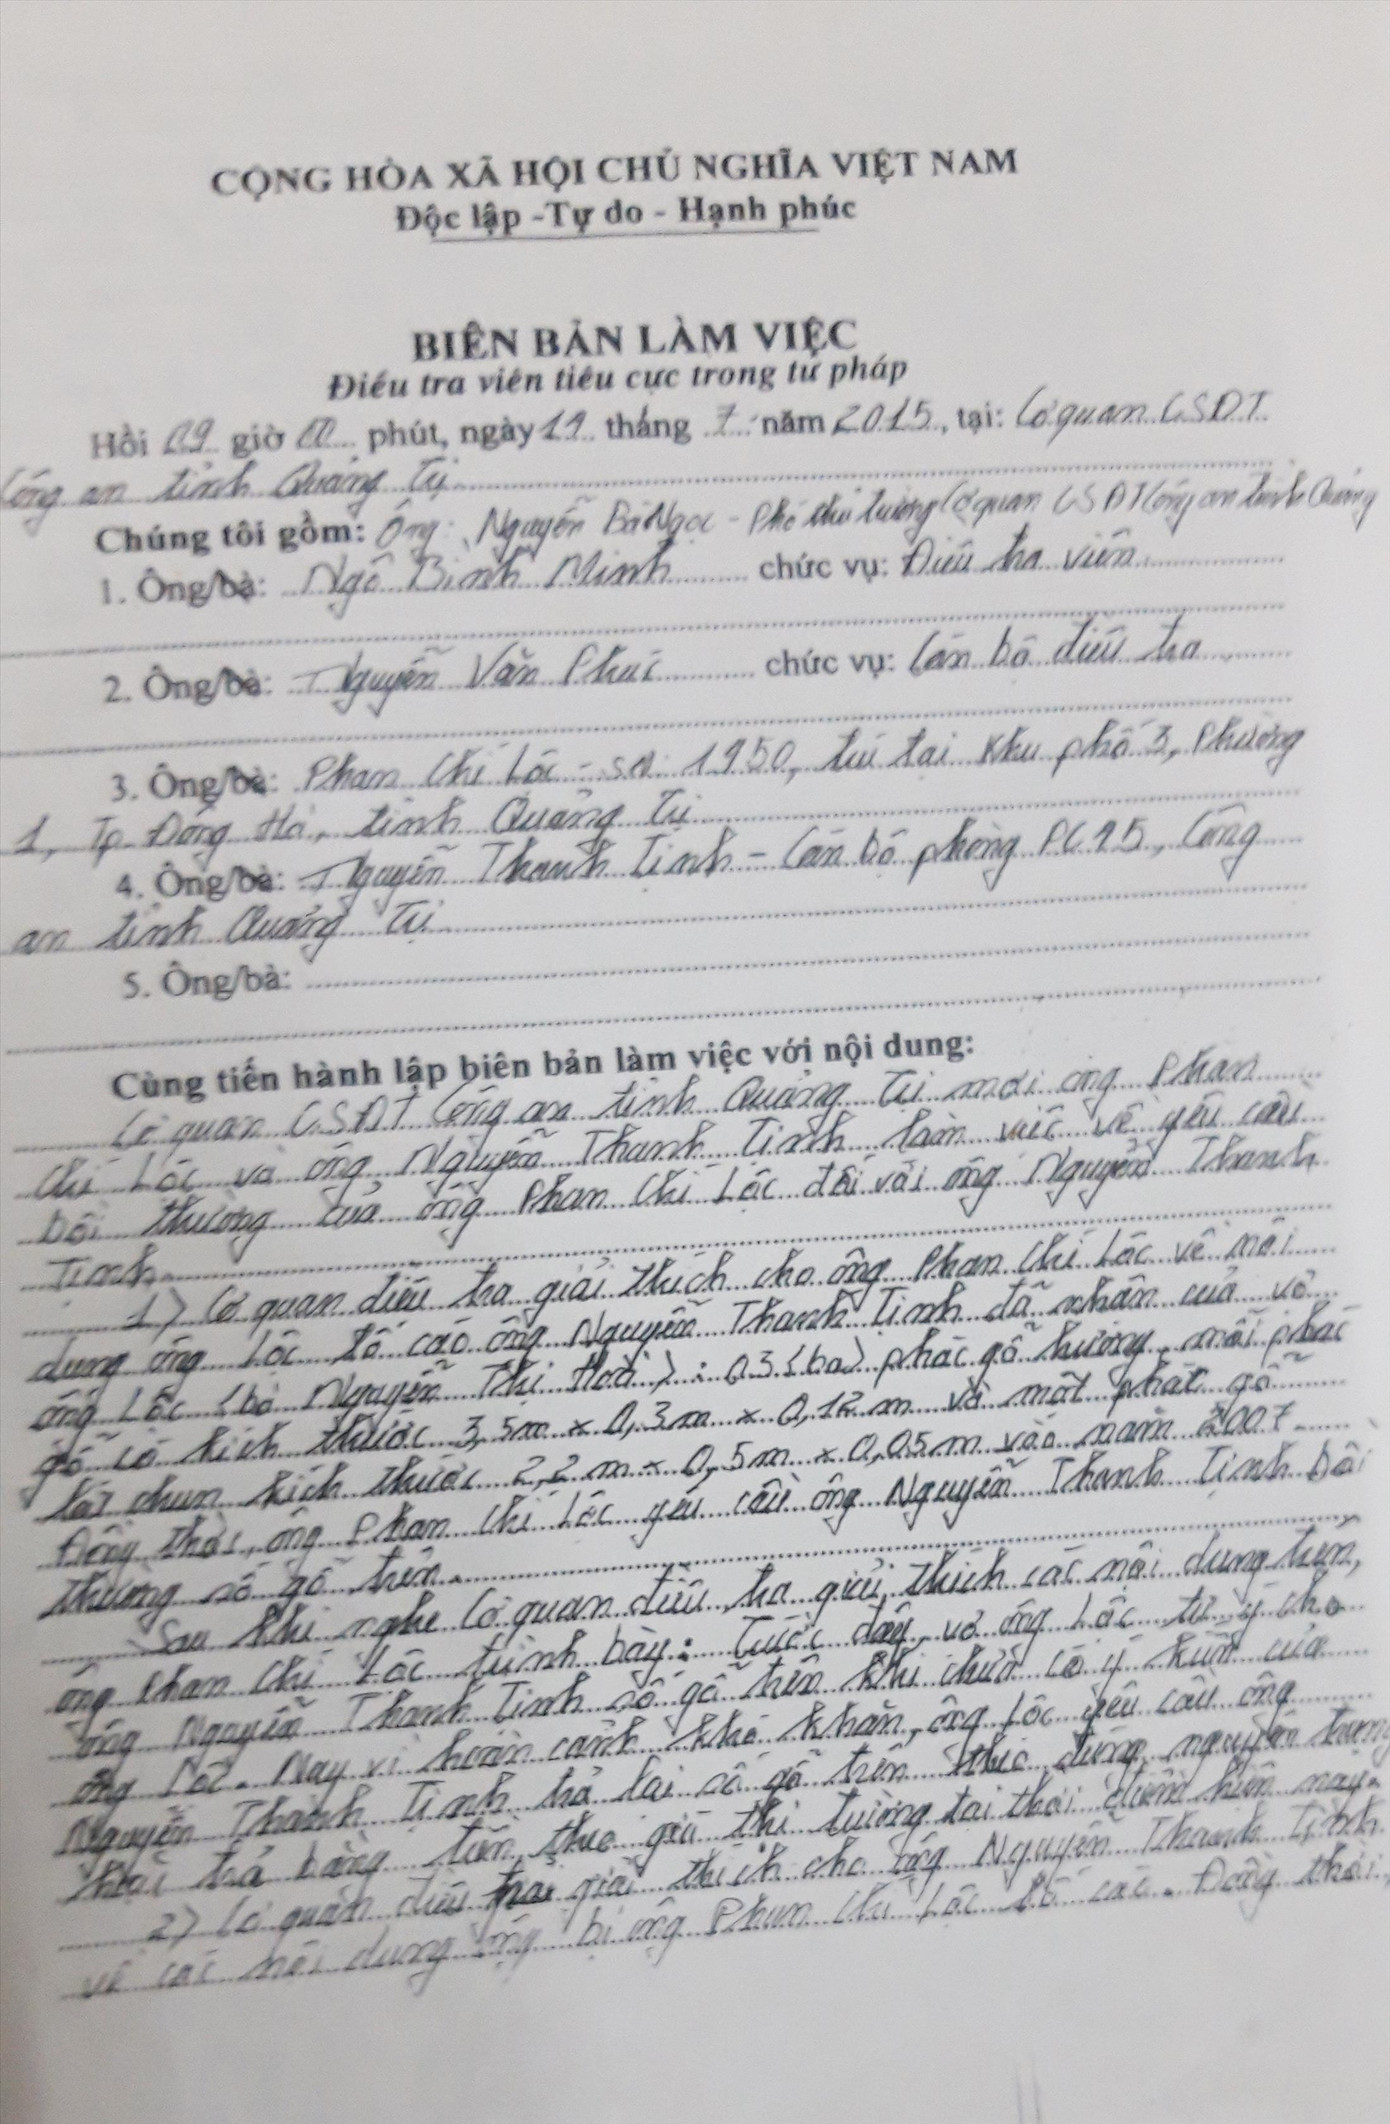 CỘNG HÒA XÃ HỘI CHỦ NGHĨA VIỆT NAM
Độc lập -Tự do - Hạnh phúc
BIÊN BẢN LÀM VIỆC
Điều tra viên tiêu cực trong tư pháp
Hồi 09 giờ 00 phút, ngày 19 tháng 7 năm 2015, tại: Cơ quan CSĐT
Công an tỉnh Quảng Trị
Chúng tôi gồm: Ông: Nguyễn Bá Ngọc - Phó thủ trưởng Cơ quan CSĐT Công an tỉnh Quảng
1. Ông/bà: Ngô Bình Minh chức vụ: Điều tra viên
2. Ông/bà: Nguyễn Văn Phúc chức vụ: Cán bộ điều tra
3. Ông/bà: Phan Chí Lộc - sn: 1950, trú tại Khu phố 3, Phường
1, Tp Đông Hà, tỉnh Quảng Trị
4. Ông/bà: Nguyễn Thanh Tịnh - Cán bộ phòng PC45, Công
an tỉnh Quảng Trị
5. Ông/bà:
Cùng tiến hành lập biên bản làm việc với nội dung:
Cơ quan CSĐT Công an tỉnh Quảng Trị mời ông Phan
Chí Lộc và ông Nguyễn Thanh Tịnh làm việc về yêu cầu
bồi thường của ông Phan Chí Lộc đối với ông Nguyễn Thanh
Tịnh
1) Cơ quan điều tra giải thích cho ông Phan Chí Lộc về nội
dung ông Lộc tố cáo ông Nguyễn Thanh Tịnh đã nhận của vợ
ông Lộc (bà Nguyễn Thị Hoà): 03 (ba) phác gỗ hương, mỗi phác
gỗ có kích thước 3,5m x 0,3m x 0,12m và một phác gỗ
kích thước 2,2m x 0,5m x 0,05m vào năm 2007.
Đồng thời, ông Phan Chí Lộc yêu cầu ông Nguyễn Thanh Tịnh bồi
thường số gỗ trên.
Sau khi nghe Cơ quan điều tra giải thích các nội dung trên,
ông Phan Chí Lộc trình bày: Trước đây, vợ ông Lộc tự ý cho
ông Nguyễn Thanh Tịnh số gỗ trên khi chưa có ý kiến của
ông Lộc. Nay vì hoàn cảnh khó khăn, ông Lộc yêu cầu ông
Nguyễn Thanh Tịnh trả lại số gỗ trên theo đúng nguyên trạng
hoặc trả bằng tiền theo giá thị trường tại thời điểm hiện nay.
2) Cơ quan điều tra giải thích cho ông Nguyễn Thanh Tịnh
về các nội dung ông bị ông Phan Chí Lộc tố cáo. Đồng thời,